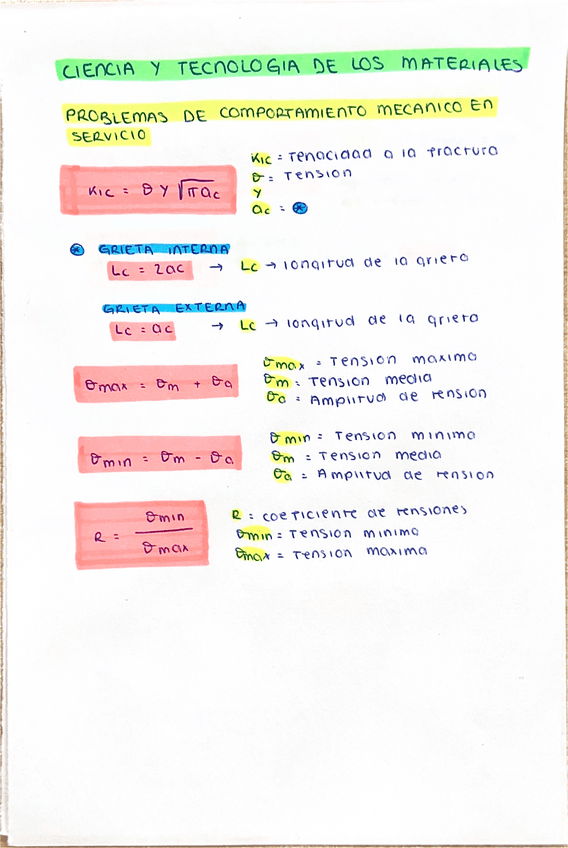 CIENCIA Y TECNOLOGIA DE LOS MATERIALES
PROBLEMAS DE COMPORTAMIENTO MECANICO EN
SERVICIO
KIC = σ Y √πac
KIC = Tenacidad a la fractura
σ = Tension
Y
ac = *
* GRIETA INTERNA
Lc = 2ac → Lc → longitud de la grieta
GRIETA EXTERNA
Lc = ac → Lc → longitud de la grieta
σmax = σm + σa
σmax = Tension maxima
σm = Tension media
σa = Amplitud de tension
σmin = σm - σa
σmin = Tension minima
σm = Tension media
σa = Amplitud de tension
R = σmin / σmax
R = coeficiente de tensiones
σmin = Tension minima
σmax = Tension maxima